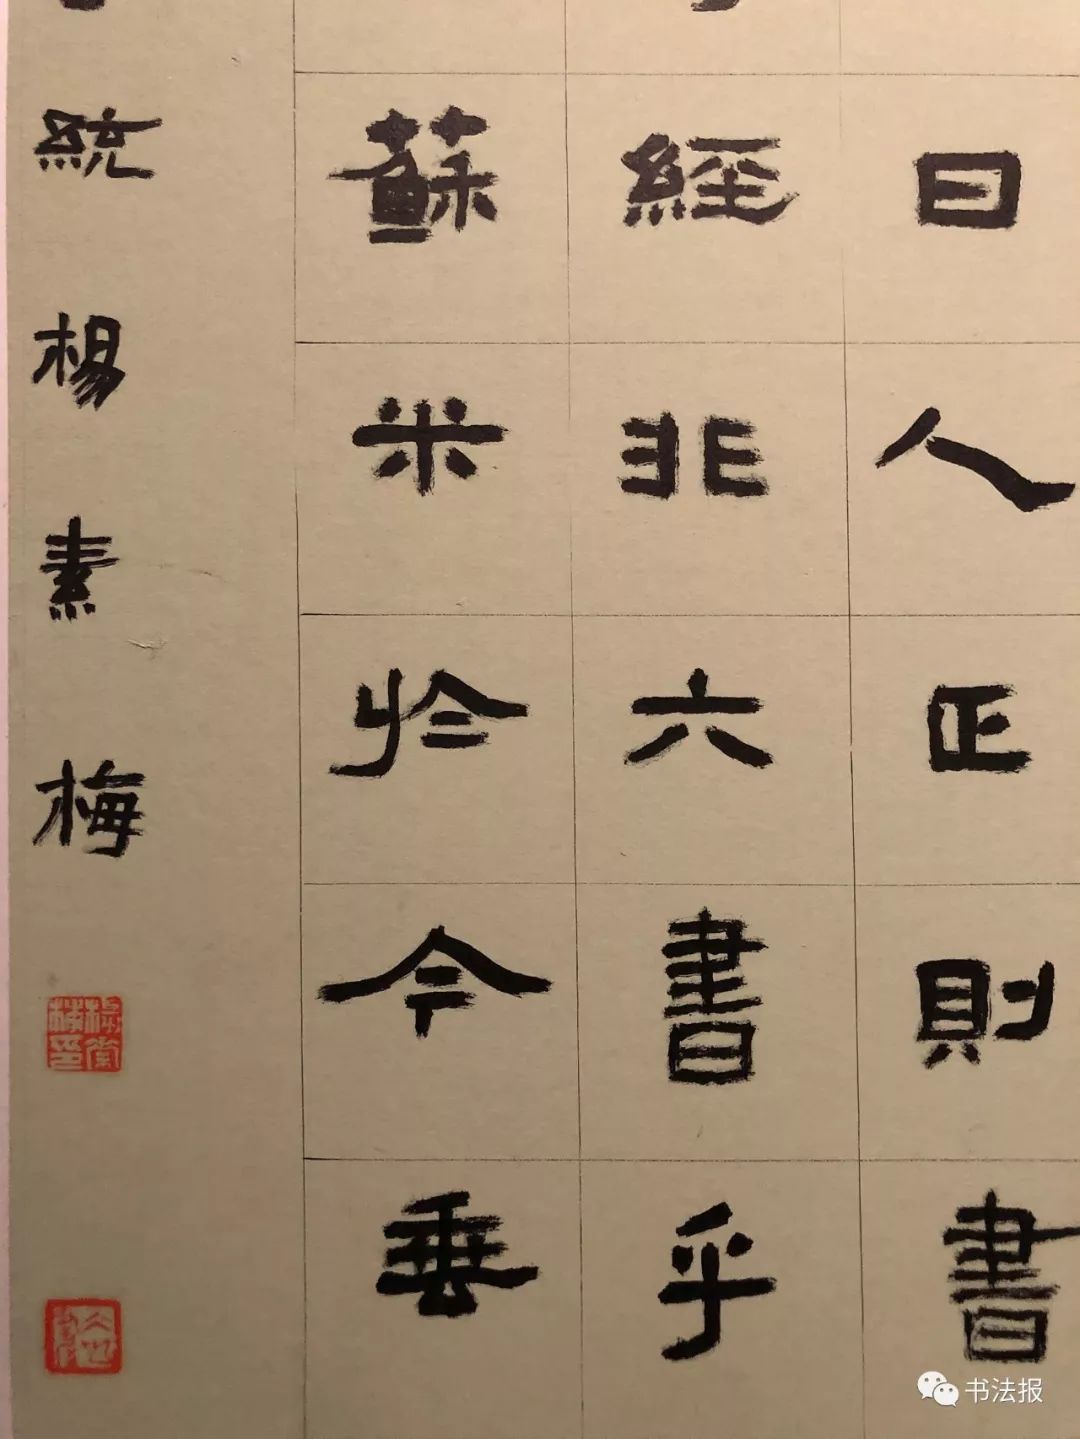 曰人正則書
經非六書乎
蘇米於今垂
統楊素梅
書法报